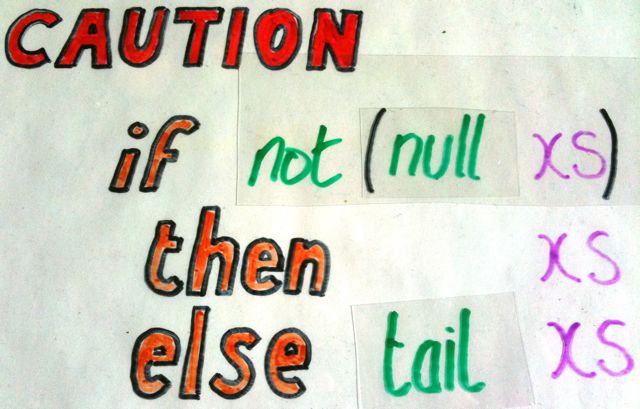 CAUTION
if not (null xs)
then xs
else tail xs